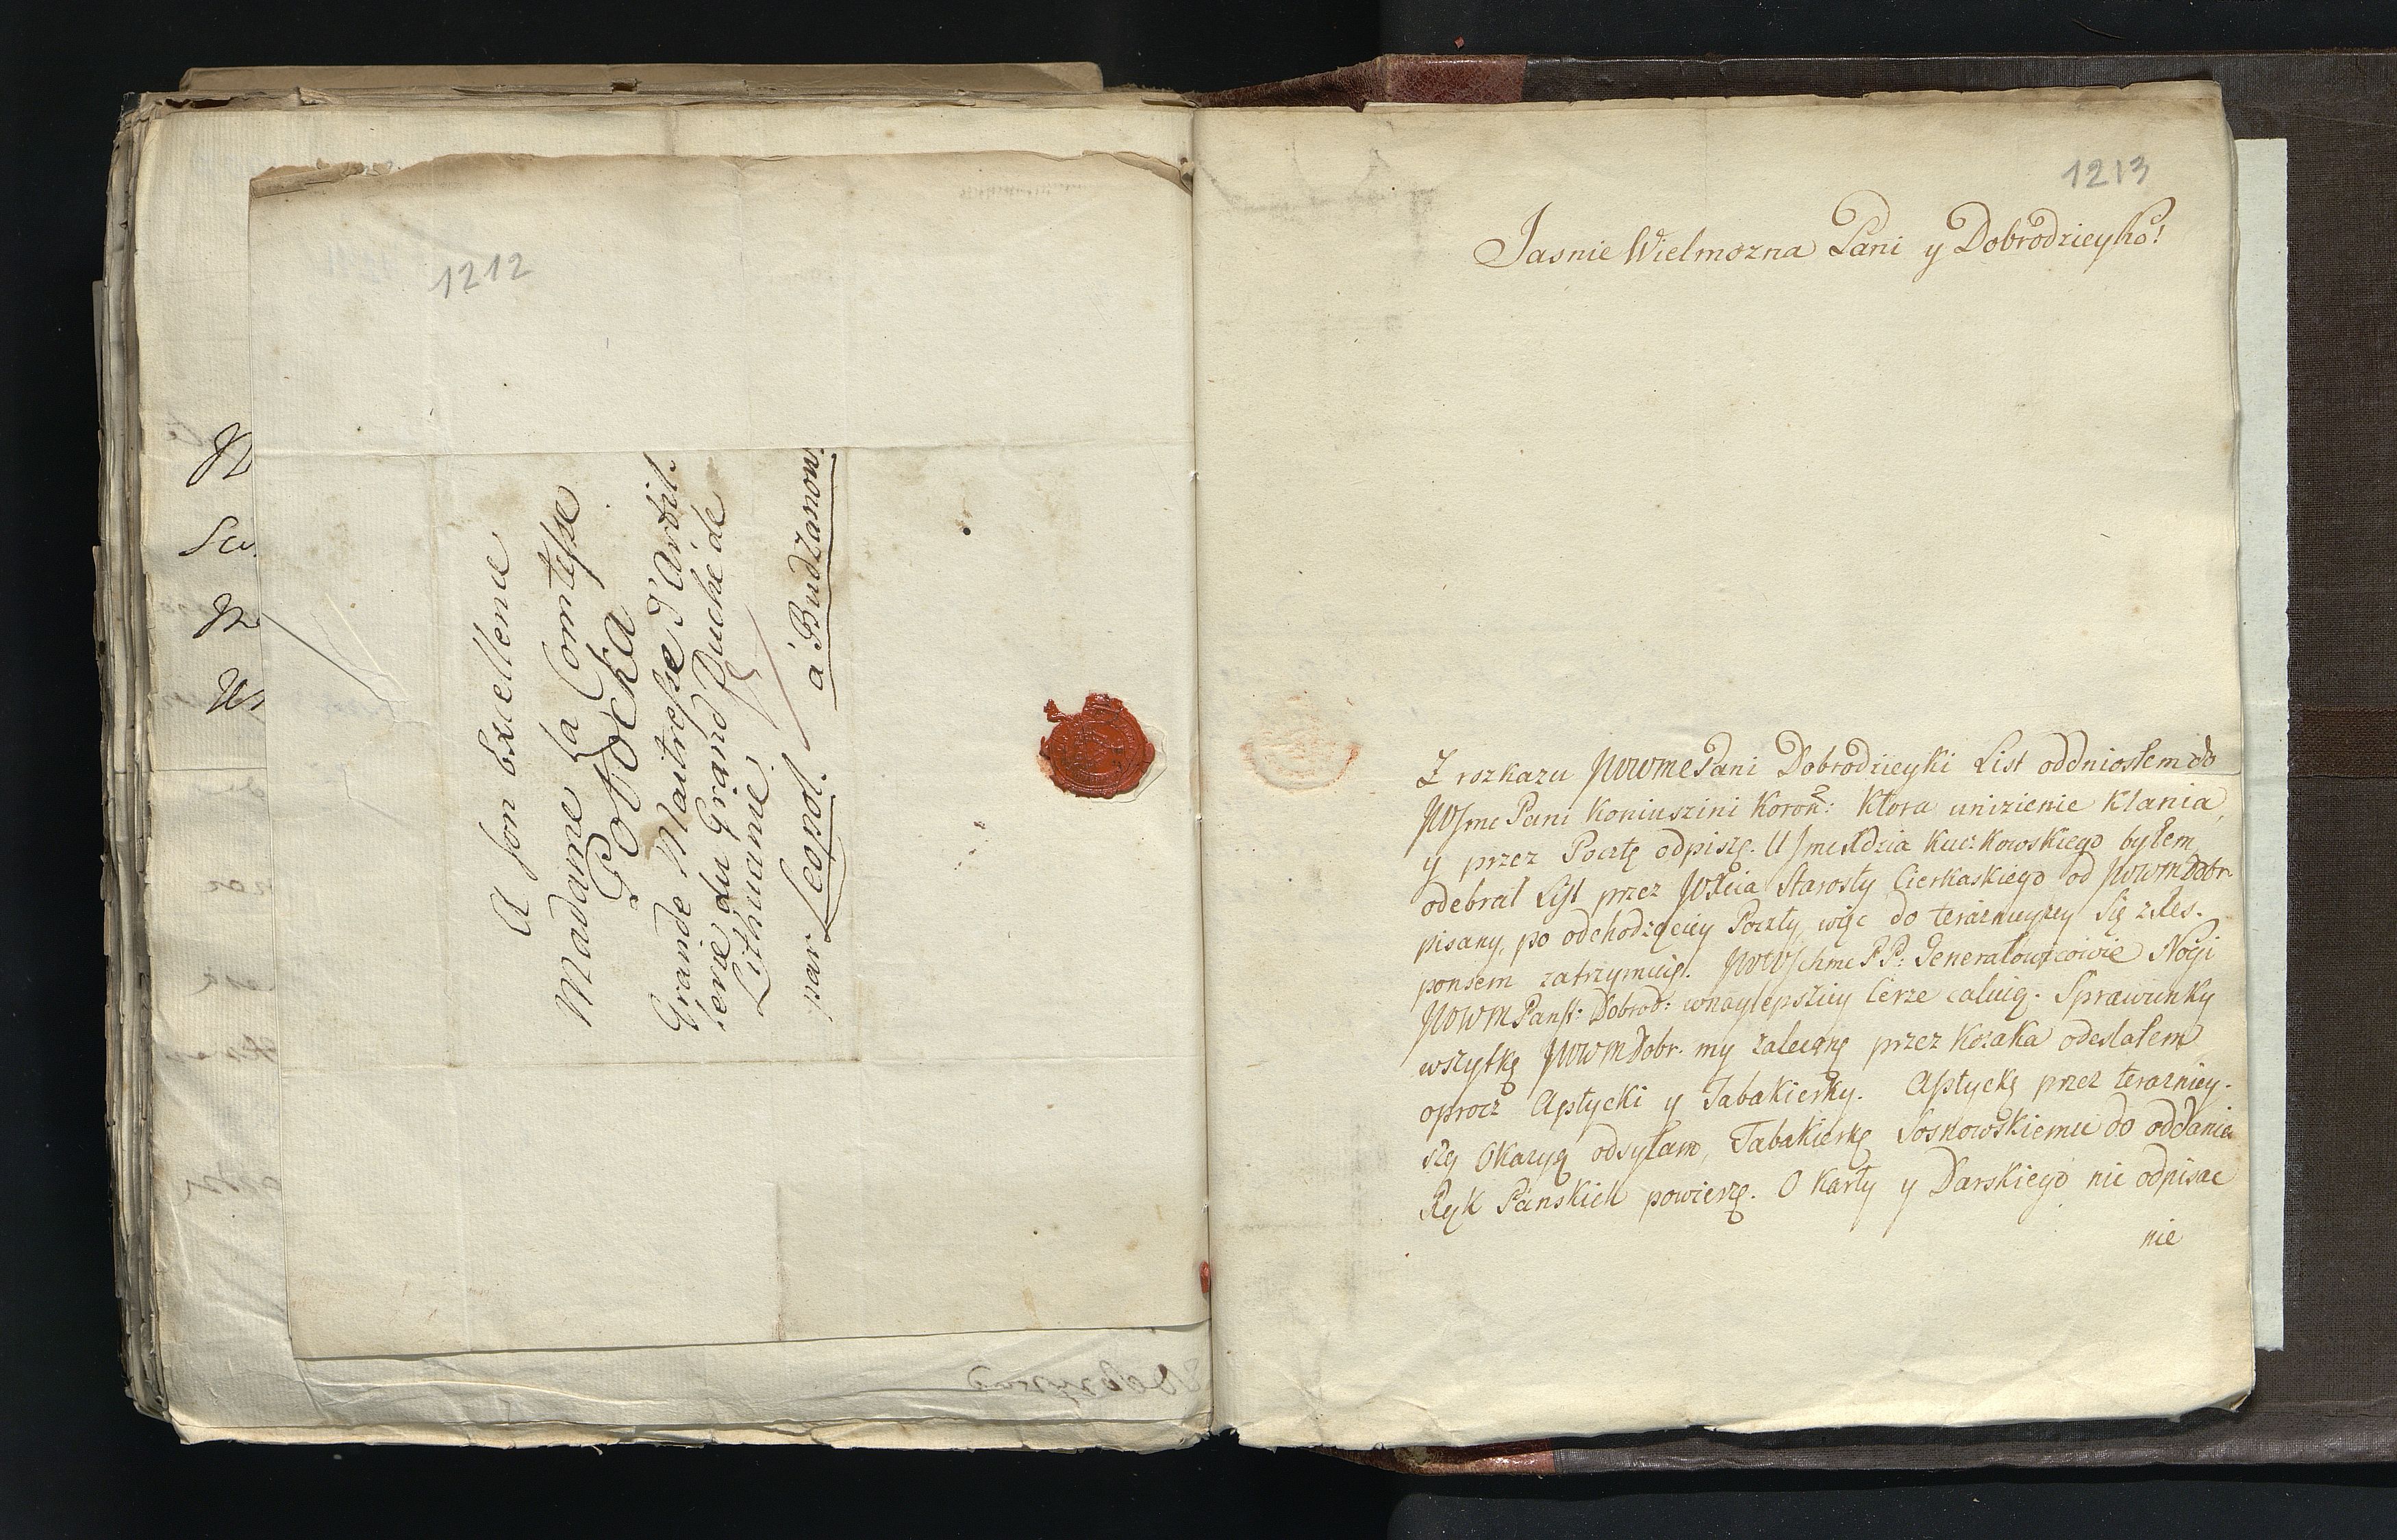 1212
A son Excellence
Madame La Comtesse
Potocka
Grande Maitresse d'Artil:
lerie du Grand Duché de
Lithuanie
par Leopol. a Budzanow.
1213
Jasnie Wielmozna Pani y Dobrodzieyko!
Z rozkazu JWWMePani Dobrodzieyki List oddniosłem do
JWJme Pani Koniuszini Koroñ: Ktora unizienie Kłania,
y przez Pocztę odpiszę. U Jme Xdza Kuczkowskiego byłem
odebrał List przez Starosty Cierkaskiego od JWWMDobr
pisany, po odchodzącey Poczty, więc do teraznieyszey się zRes-
ponsem zatrzymuię. PP: Generałowiczowie Nogi
JWWM Pańs: Dobrod: wnaylepszey Cerze całuią. Sprawunky
wszytkę JWWMDobr. my zalecąnę przez Kozaka odesłałem
oprocz Aptycki y Tabakierky. Aptyckę przez terazniey-
szą Okazyą odsyłam, Tabakierkę Sosnowskiemu do oddania
Ręk Pańskich powierzę. O Karły y Darskiego nic odpisac
nie